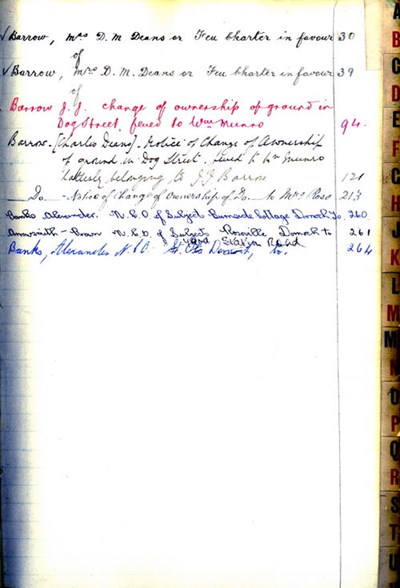 ✓ Barrow, Mrs D. M Deans or Feu Charter in favour 30
of
✓ Barrow, Mrs D. M. Deans or Feu Charter in favour 39
of
Barrow J. J. change of ownership of ground in
Dog Street, feued to Wm Munro 94.
Barrow. (Charles Deans). Notice of Change of Ownership
of ground in Dog Street. feued to Wm Munro
latterly belonging to J J Barrow 121
Do - Notice of Change of Ownership of Do. to Mrs Ross 213
Banks Alexander. N. C. O. of Subjects Burnside Cottage Dornoch to 260
Brown N. C. O. of Subjects Dornoch to 261
yard Station Road
Banks, Alexander N. C. O. to 264
A
B
C
D
E
F
C
H
J
K
L
M
M
N
O
P
Q
R
S
T
U